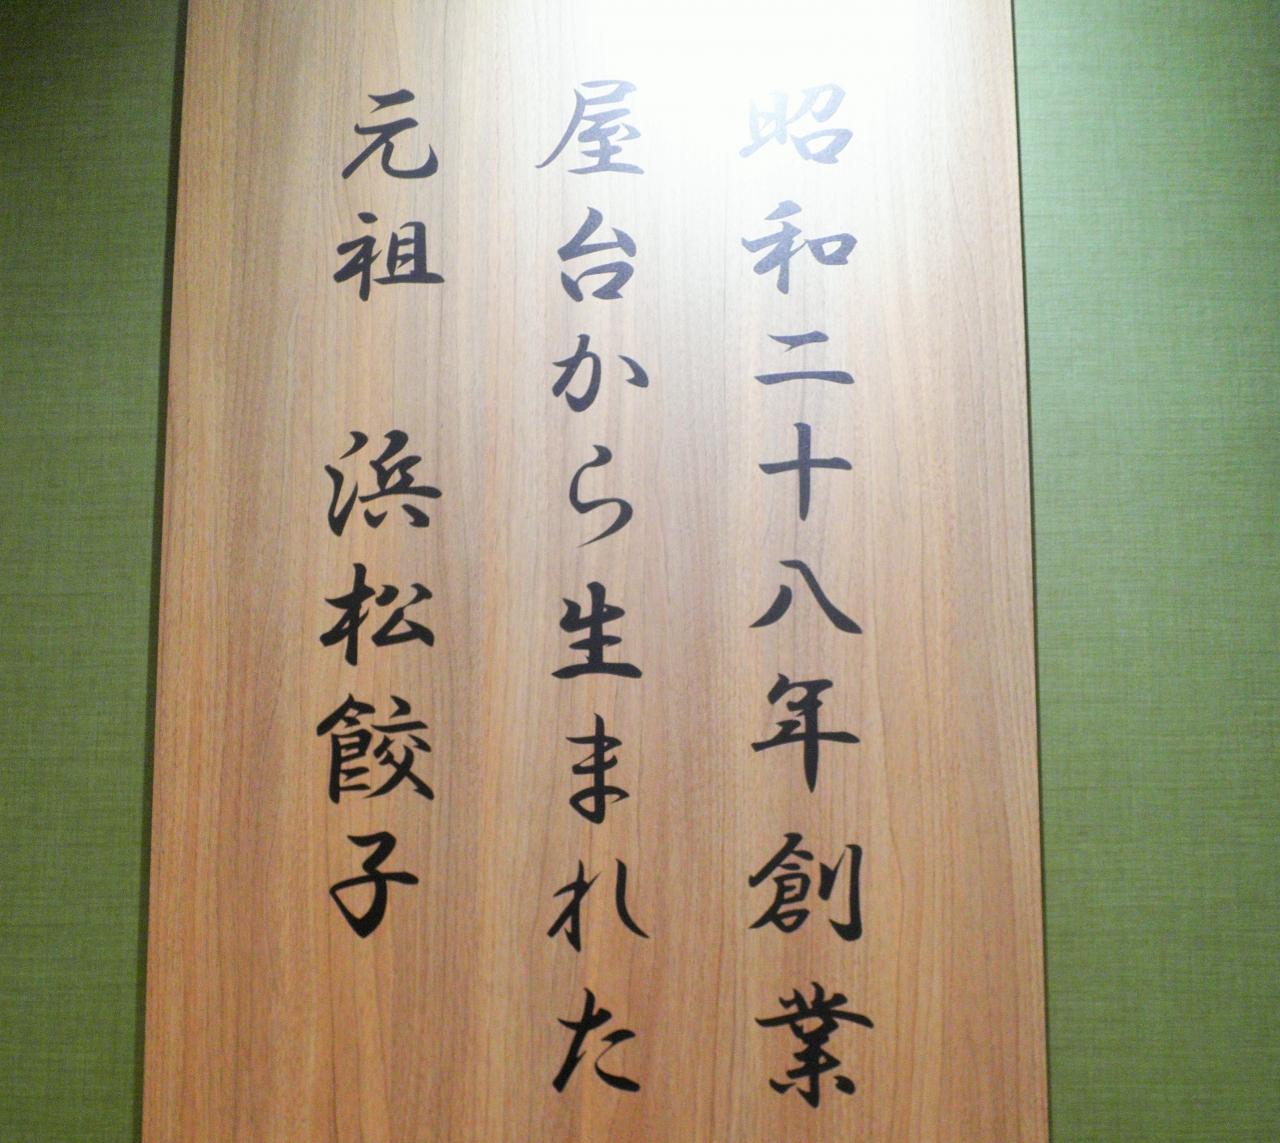 昭和二十八年創業
屋台から生まれた
元祖　浜松餃子